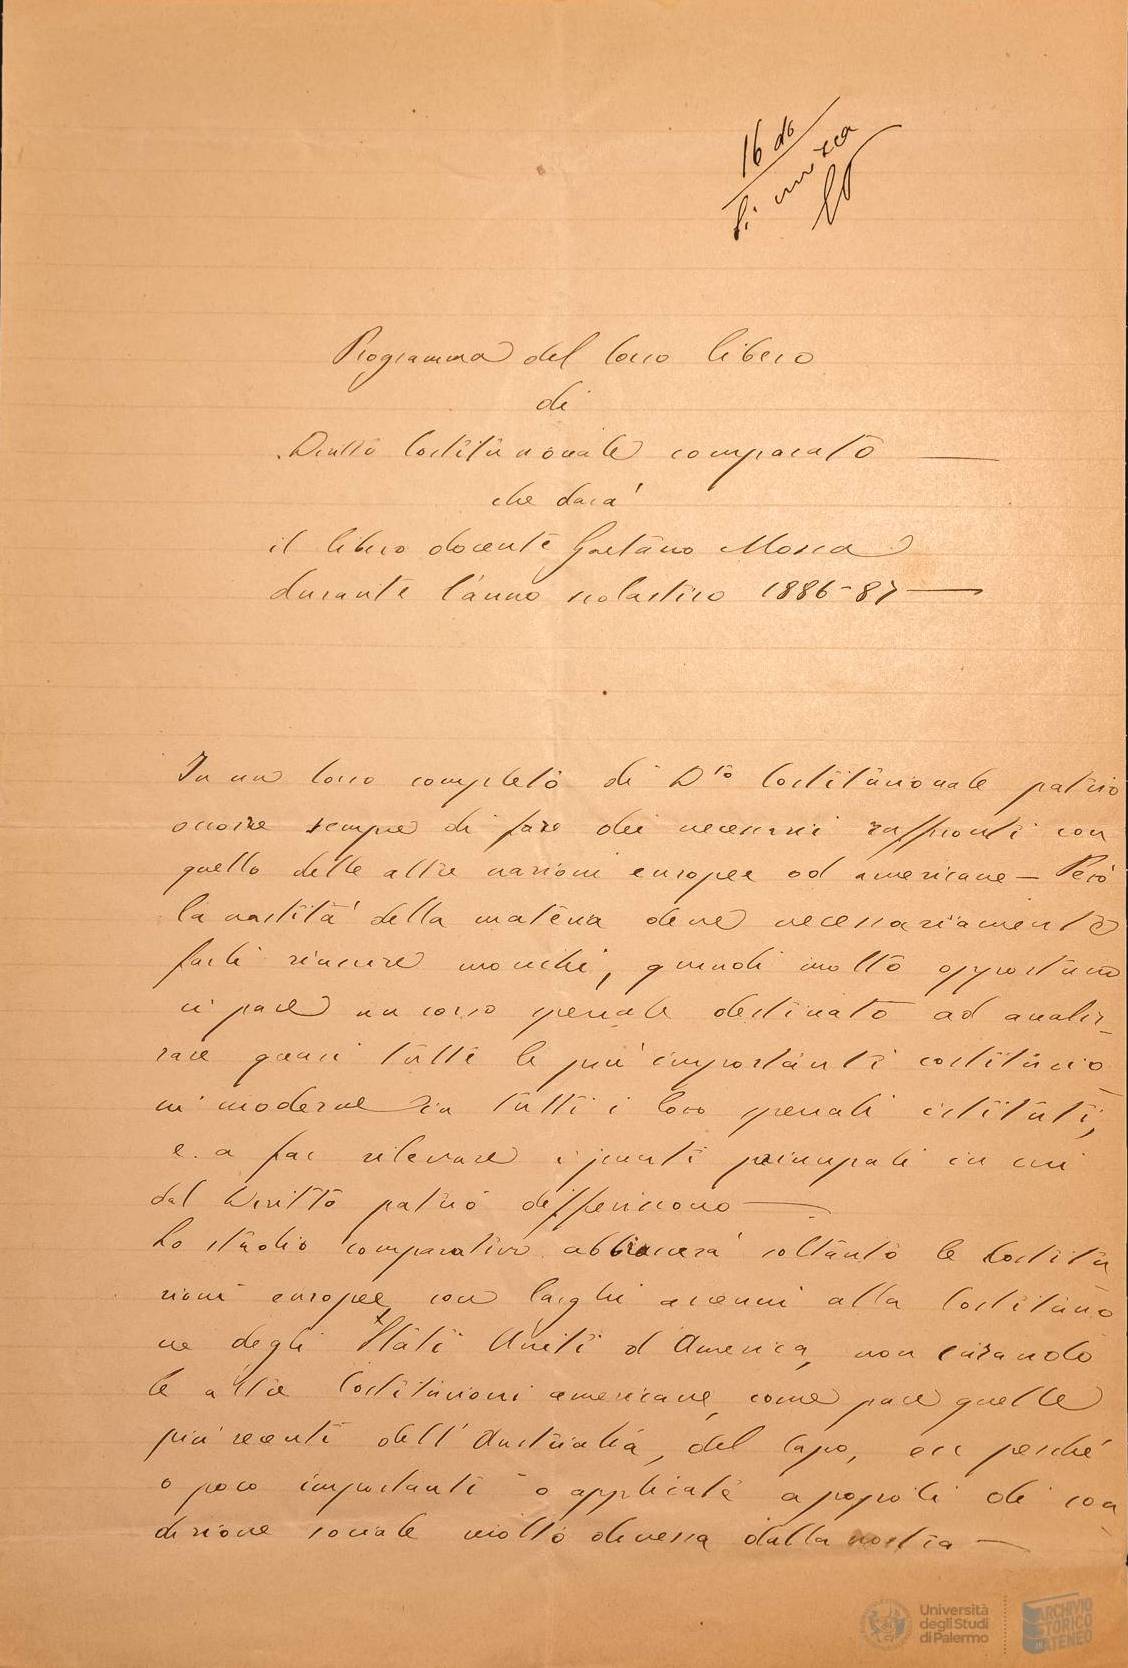 16 do
Si unisca
Programma del Corso libero
di
Diritto Costituzionale comparato —
che darà
il libero docente Gaetano Mosca
durante l'anno scolastico 1886-87 —
In un Corso completo di D.to Costituzionale patrio
occorre sempre di fare dei necessarii raffronti con
quello delle altre nazioni europee od americane — Però
la vastità della materia deve necessariamente
farli riuscire monchi, quindi molto opportuno
ci pare un corso speciale destinato ad analiz-
zare quasi tutte le più importanti costituzio
ni moderne in tutti i loro speciali istituti,
e a far rilevare i punti principali in cui
dal Diritto patrio differiscono —
Lo studio comparativo abbraccerà soltanto le Costitu
zioni europee con larghi accenni alla Costituzio
ne degli Stati Uniti d'America, non curando
le altre Costituzioni americane, come pare quelle
più recenti dell'Australia, del Capo, ecc perché
o poco importanti o applicate a popoli di con
dizione sociale molto diversa dalla nostra —
Università
degli Studi
di Palermo
ARCHIVIO
STORICO
ATENEO